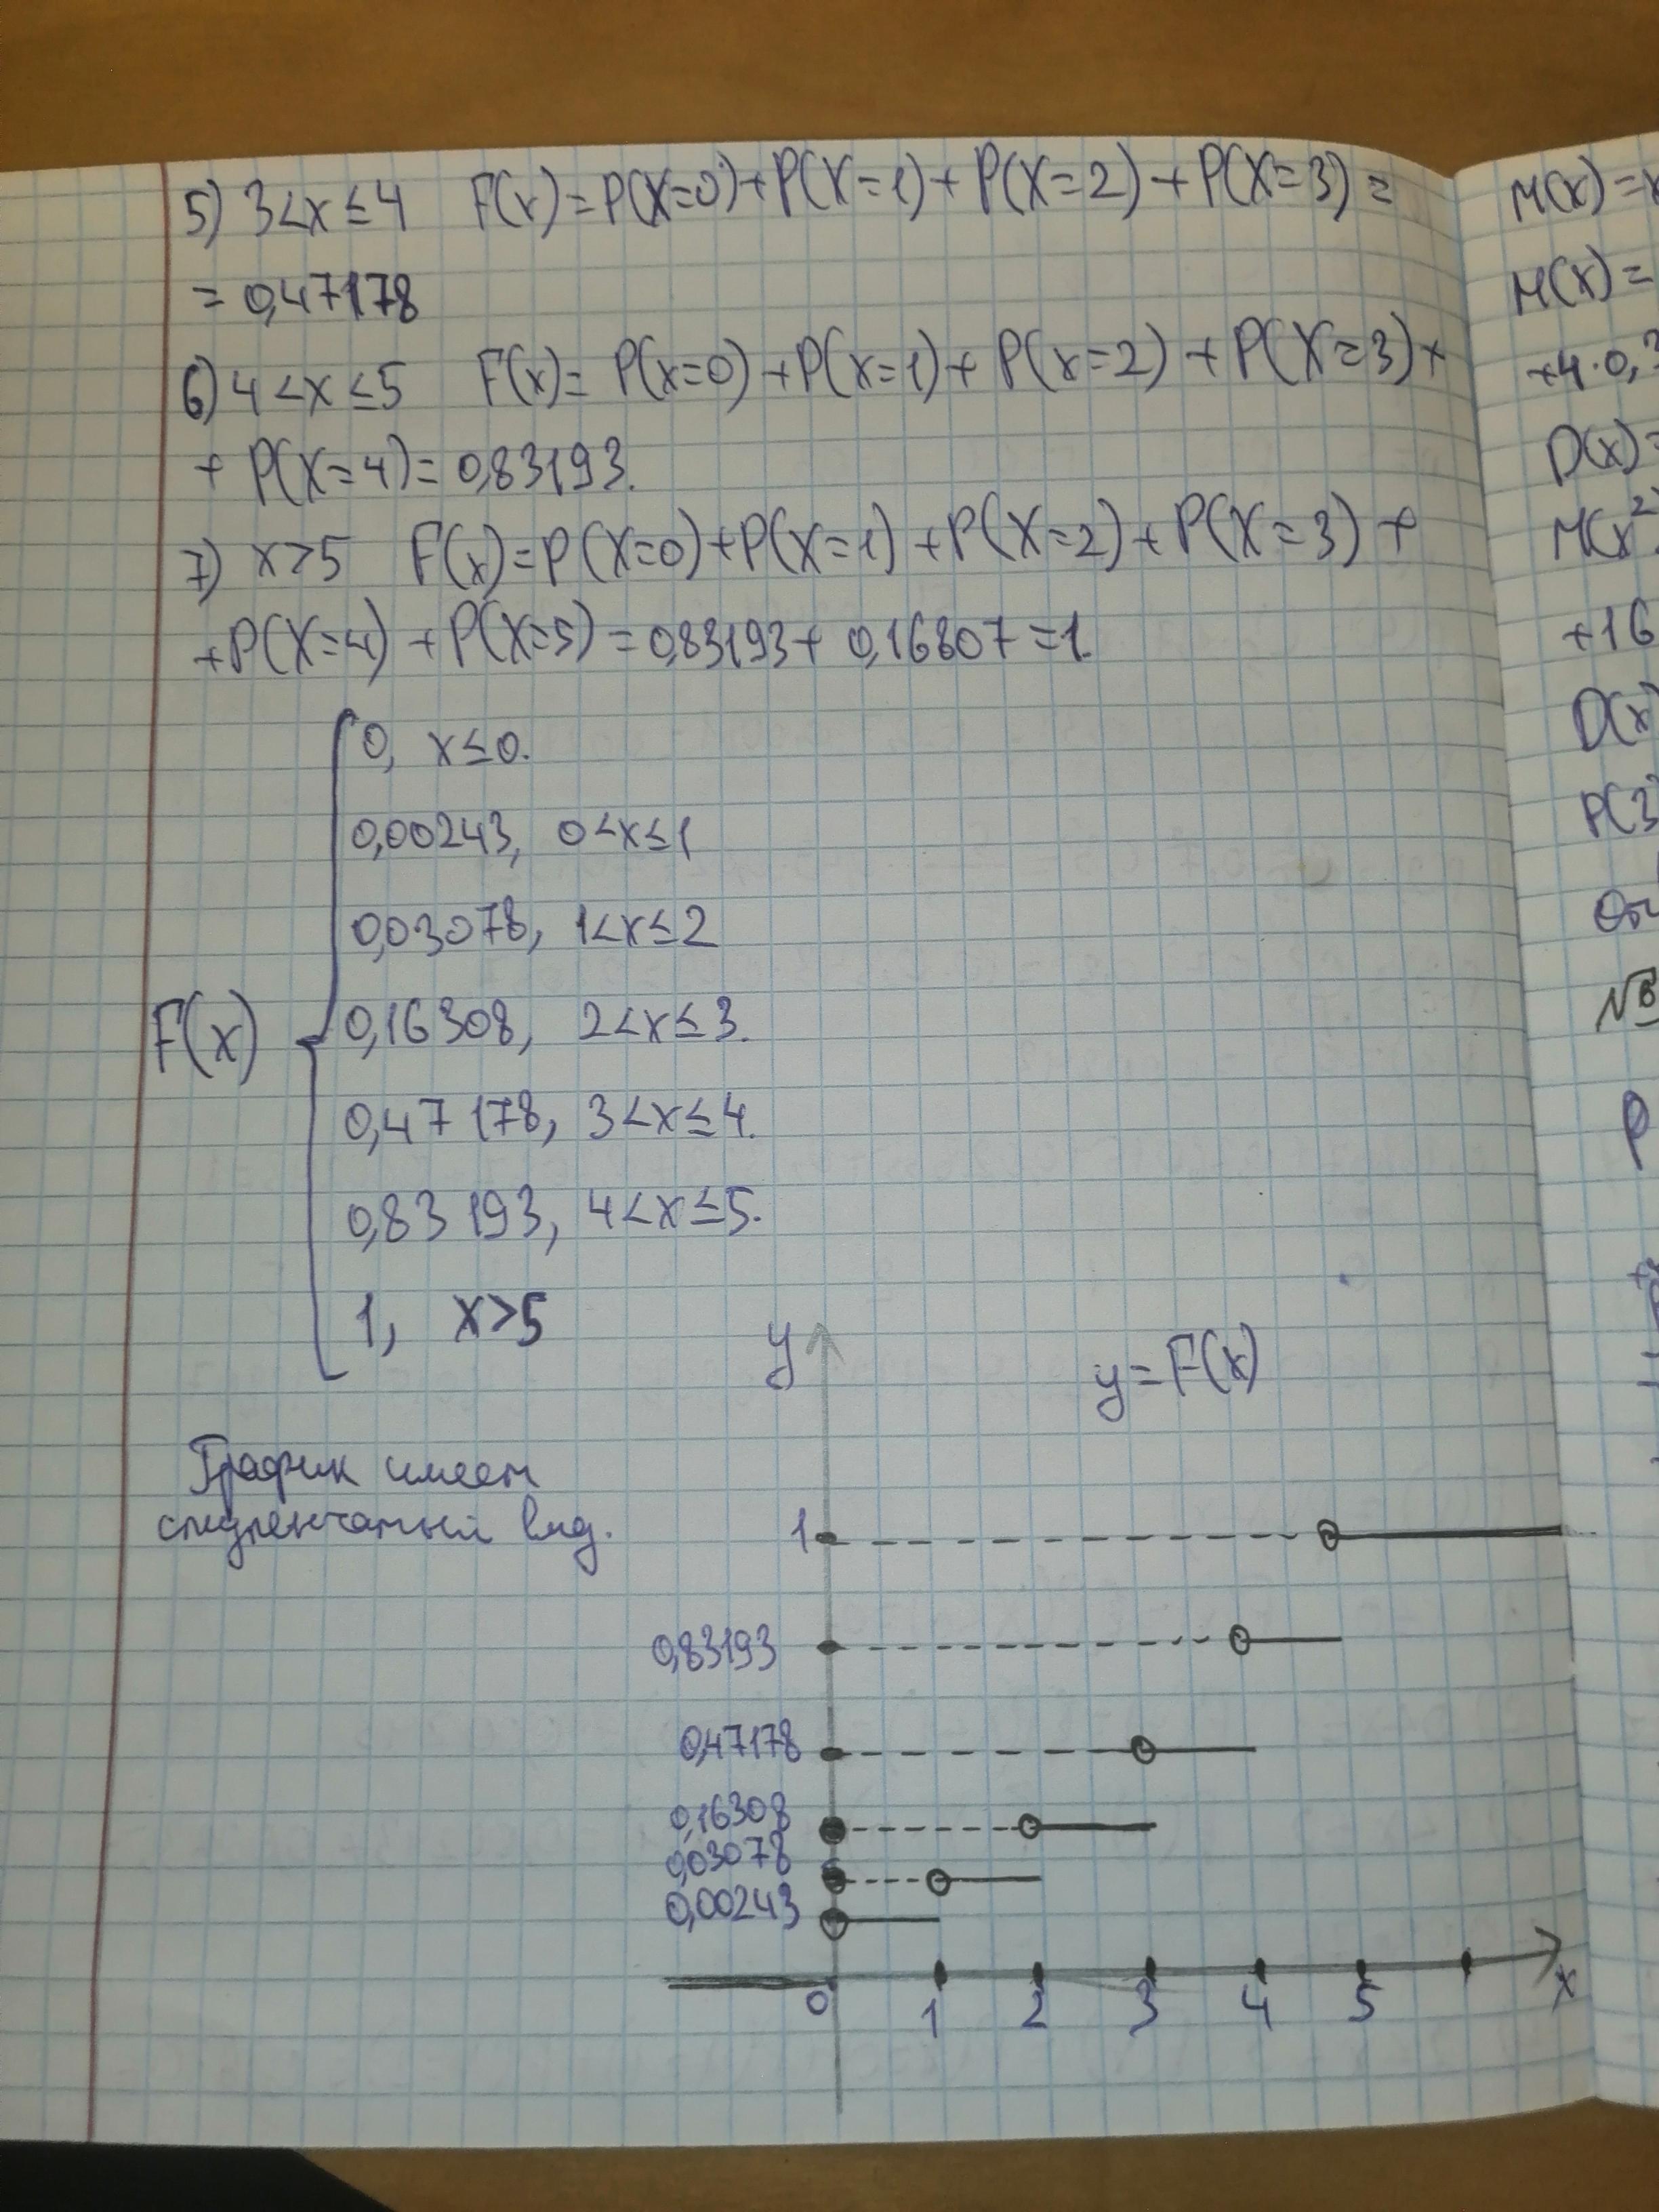 5) 3<x≤4 F(x)=P(X=0)+P(X=1)+P(X=2)+P(X=3)=
=0,47178
6) 4<x≤5 F(x)=P(x=0)+P(x=1)+P(x=2)+P(X=3)+
+P(X=4)=0,83193.
7) x>5 F(x)=P(X=0)+P(X=1)+P(X=2)+P(X=3)+
+P(X=4)+P(X=5)=0,83193+0,16807=1.
0, x≤0.
0,00243, 0<x≤1
0,03078, 1<x≤2
F(x) 0,16308, 2<x≤3.
0,47178, 3<x≤4.
0,83193, 4<x≤5.
1, x>5
График имеет
ступенчатый вид.
y
y=F(x)
1
0,83193
0,47178
0,16308
0,03078
0,00243
0 1 2 3 4 5 x
M(x)=
M(x)=
+4·0,3
D(x)=
M(x²
+16
D(x)
P(3
От
№
P